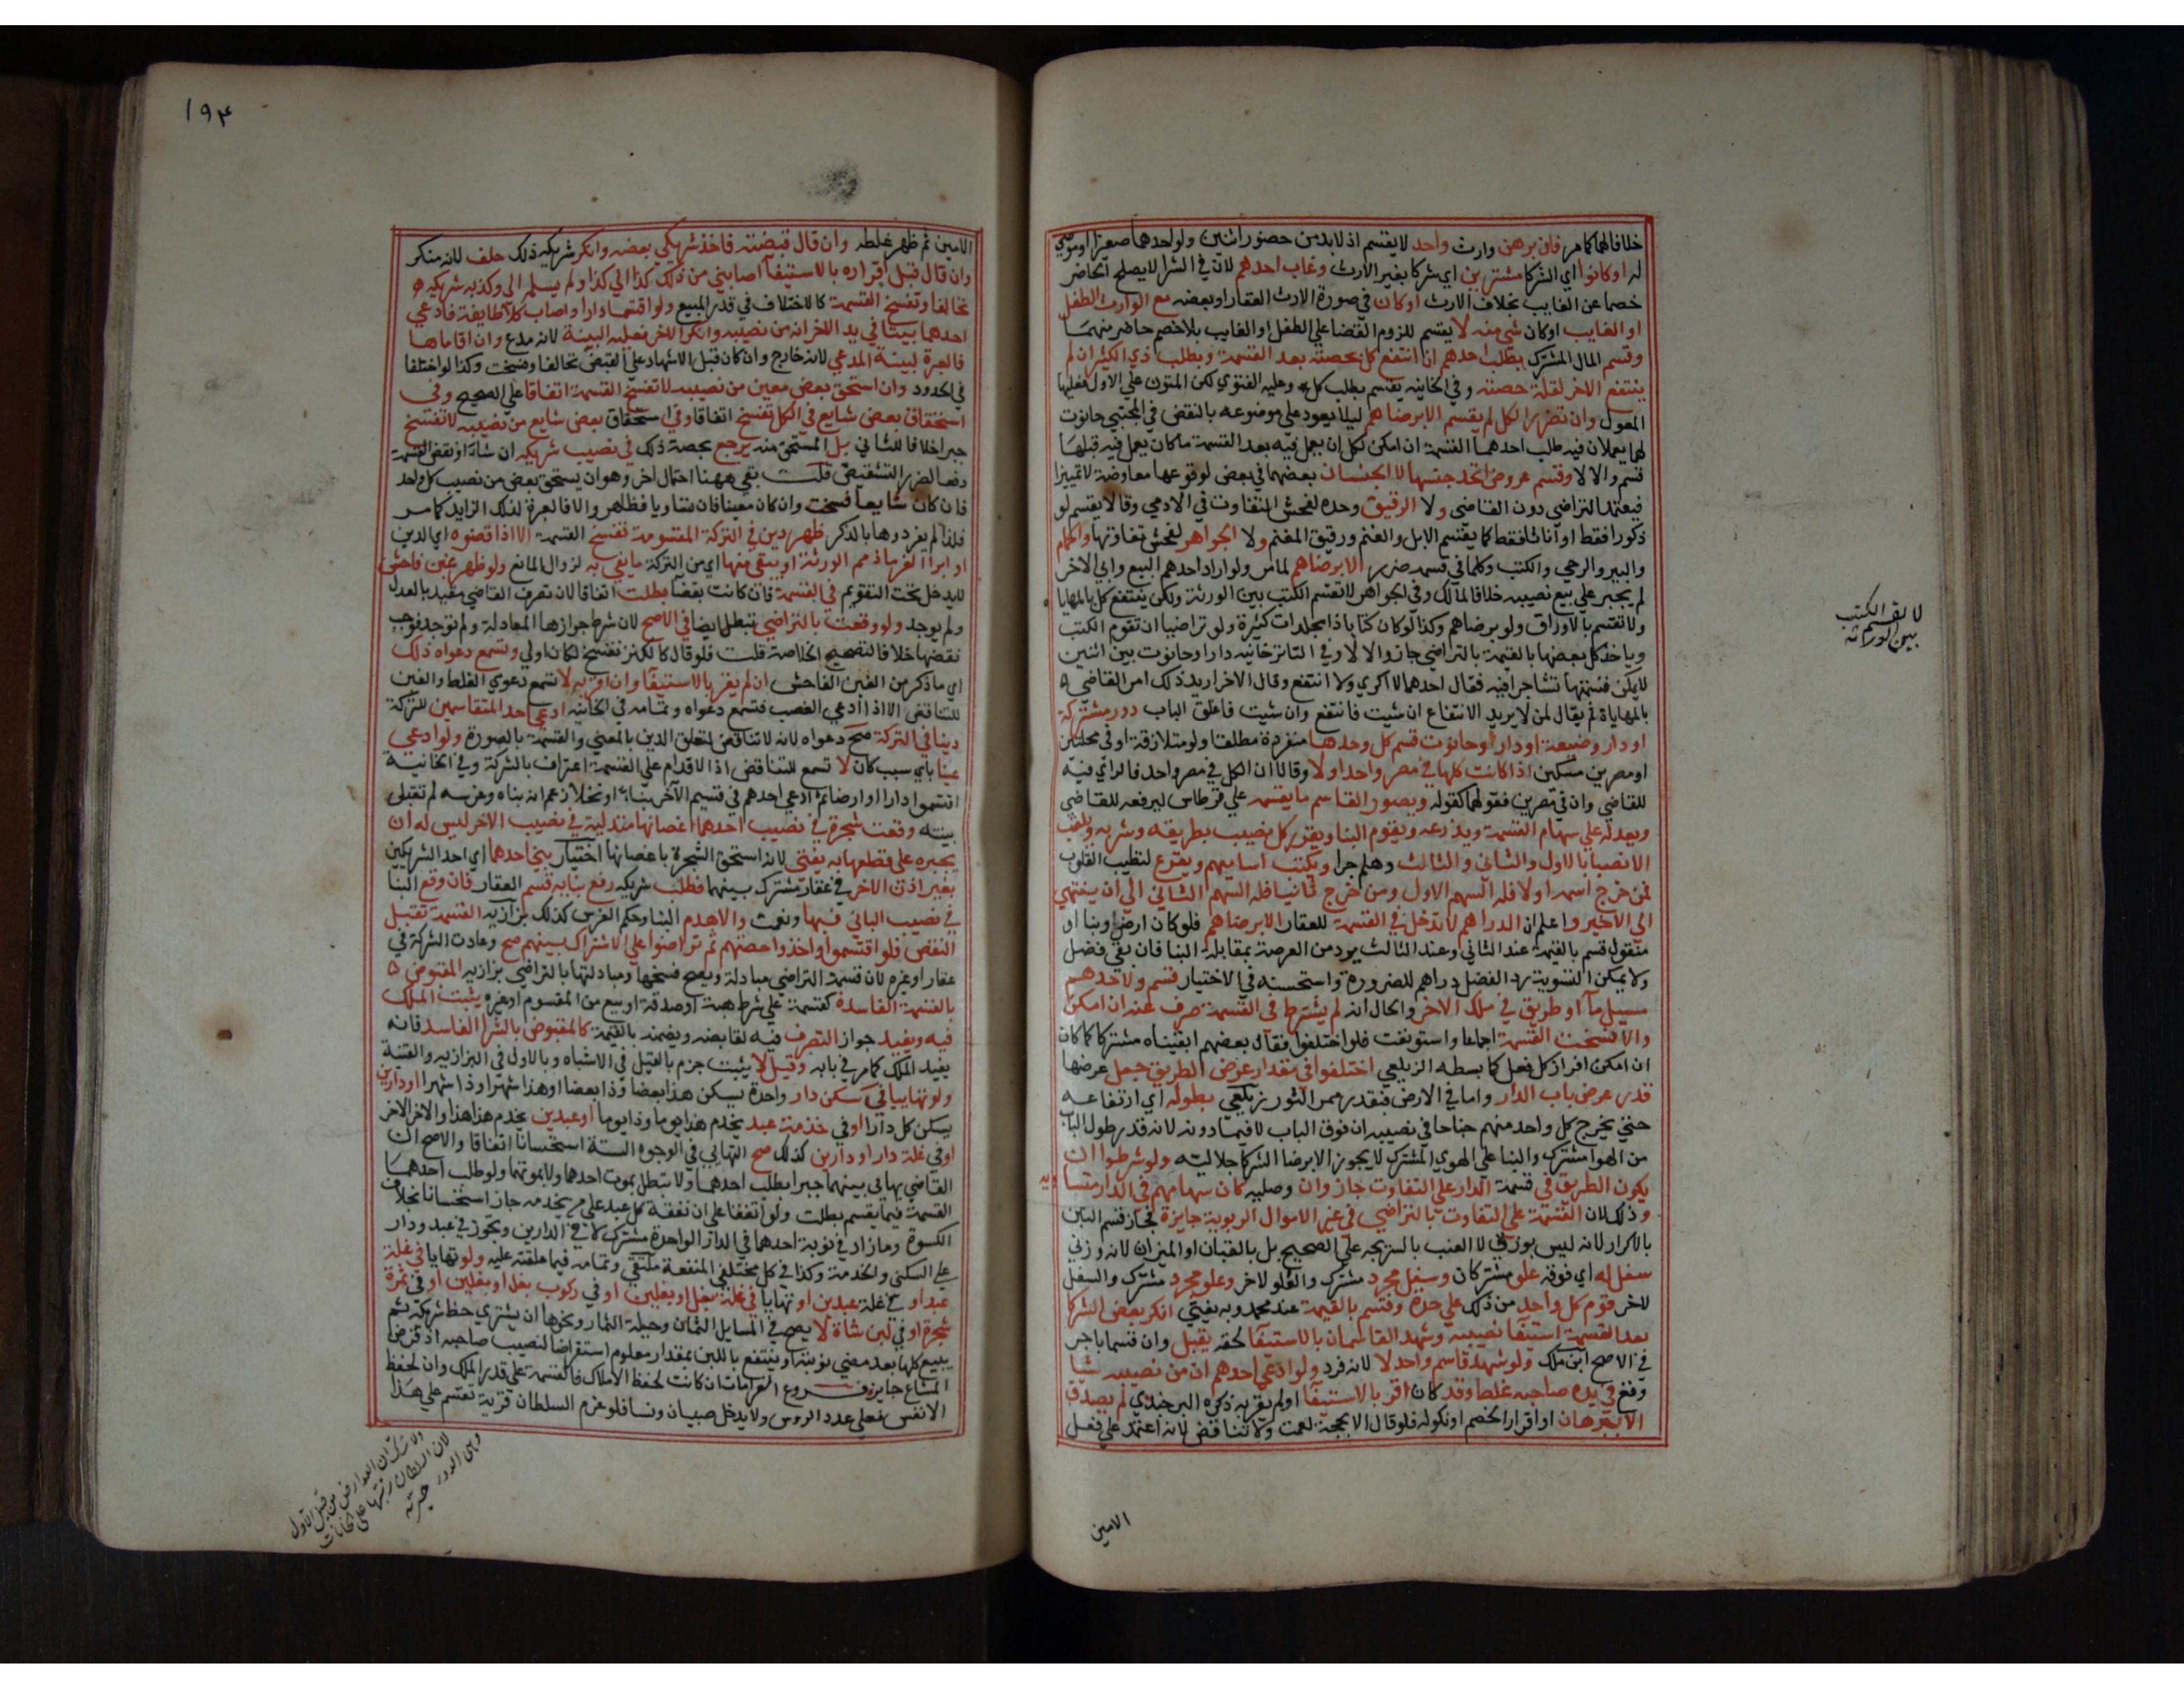 خلافا لهما كما مر فان برهن وارث واحد لا يقسم اذ لا بد من حضور اثنين ولو احدهما صغيرا او موصي
له او كانوا اي الشركا مشترين اي شركا بغير الارث وغاب احدهم لان في الشرا لا يصلح الحاضر
خصما عن الغايب بخلاف الارث او كان في صورة الارث العقار او بعضه مع الوارث الطفل
او الغايب او كان شي منه لا يقسم للزوم القضا علي الطفل او الغايب بلا خصم حاضر عنهما
وقسم المال المشترك بطلب احدهم ان انتفع كل بحصته بعد القسمة وبطلب ذي الكثير ان لم
ينتفع الاخر لقلة حصته وفي الخانيه يقسم بطلب كل وعليه الفتوي لكن المتون علي الاول فعليها
المعول وان تضرر الكل لم يقسم الا برضاهم ليلا يعود علي موضوعه بالنقض في المجتبي حانوت
لهما يعملان فيه طلب احدهما القسمة ان امكن لكل ان يعمل فيه بعد القسمة ما كان يعمل فيه قبلها
قسم والا لا وقسم عروض اتحد جنسها لا الجنسان بعضهما في بعض لوقوعها معاوضة لا تمييزا
فيعتمد التراضي دون القاضي ولا الرقيق وحده لفحش التفاوت في الادمي وقالا يقسم لو
ذكورا فقط او اناثا فقط كما يقسم الابل والغنم ورقيق المغنم ولا الجواهر لفحش تفاوتها والحمام
والبير والرحي والكتب وكلما في قسمه ضرر الا برضاهم لما مر ولو اراد احدهم البيع وابي الاخر
لم يجبر علي بيع نصيبه خلافا لمالك وفي الجواهر لا تقسم الكتب بين الورثة ولكن ينتفع كل بالمهاياة
ولا تقسم بالاوراق ولو برضاهم وكذا لو كان كتابا ذا مجلدات كثيرة ولو تراضيا ان تقوم الكتب
وياخذ كل بعضها بالقيمة بالتراضي جاز والا لا وفي التاترخانيه دار او حانوت بين اثنين
لا يمكن قسمتها تشاجرا فيه فقال احدهما لا اكري ولا انتفع وقال الاخر اريد ذلك امر القاضي
بالمهاياة ثم يقال لمن لا يريد الانتفاع ان شيت فانتفع وان شيت فاغلق الباب دور مشتركة
او دار وضيعة او دار او حانوت قسم كل وحدها منفردة مطلقا ولو متلازقة او في محلتين
او مصرين مسكين اذا كانت كلها في مصر واحد اولا وقالا ان الكل في مصر واحد فالراي فيه
للقاضي وان في مصرين فقولهما كقوله ويصور القاسم ما يقسمه علي قرطاس ليرفعه للقاضي
ويعدله علي سهام القسمة ويذرعه ويقوم البنا ويفرز كل نصيب بطريقه وشربه ويلقب
الانصبا بالاول والثاني والثالث وهلم جرا ويكتب اساميهم ويقرع لتطيب القلوب
فمن خرج اسمه اولا فله السهم الاول ومن خرج ثانيا فله السهم الثاني الي ان ينتهي
الي الاخير واعلم ان الدراهم لا تدخل في القسمة للعقار الا برضاهم فلو كان ارض وبنا او
منقول قسم بالقيمة عند الثاني وعند الثالث يرد من العرصة بمقابلة البنا فان بقي فضل
ولا يمكن التسوية رد الفضل دراهم للضرورة واستحسنه في الاختيار قسم ولاحدهم
مسيل ما او طريق في ملك الاخر والحال انه لم يشترط في القسمة صرف عنه ان امكن
والا فسخت القسمة اجماعا واستونفت فلو اختلفوا فقال بعضهم ابقيناه مشتركا كما كان
ان امكن افراز كل فعل كما بسطه الزيلعي اختلفوا في مقدار عرض الطريق جعل عرضها
قدر عرض باب الدار واما في الارض فبقدر ممر الثور زيلعي بطوله اي ارتفاعه
حتي يخرج كل واحد منهم جناحا في نصيبه ان فوق الباب لا فيما دونه لانه قدر طول الباب
من الهوا مشترك والبنا علي الهوي المشترك لا يجوز الا برضا الشركا جلاليه ولو شرطوا ان
يكون الطريق في قسمة الدار علي التفاوت جاز وان وصليه كان سهامهم في الدار متساويه
وذلك لان القسمة علي التفاوت بالتراضي في غير الاموال الربوية جايزة فجاز قسم التبن
بالاكرار لانه ليس بوزني لا العنب بالشريجه علي الصحيح بل بالقبان او الميزان لانه وزني
سفل له اي فوقه علو مشتركان وسفل مجرد مشترك والعلو لاخر وعلو مجرد مشترك والسفل
لاخر قوم كل واحد من ذلك علي حدة وقسم بالقيمة عند محمد وبه يفتي انكر بعض الشركا
بعد القسمة استيفا نصيبه وشهد القاسمان بالاستيفا لحقه يقبل وان قسما باجر
في الاصح ابن ملك ولو شهد قاسم واحد لا لانه فرد ولو ادعي احدهم ان من نصيبه شيا
وقع في يد صاحبه غلطا وقد كان اقر بالاستيفا او لم يقر به ذكره البرجندي لم يصدق
الا ببرهان او اقرار الخصم او نكوله فلو قال الا بحجة لعمت ولا تناقض لانه اعتمد علي فعل
الامين
لا تقسم الكتب
بين الورثه
١٩٤
الامين ثم ظهر غلطه وان قال قبضته فاخذ شريكي بعضه وانكر شريكه ذلك حلف لانه منكر
وان قال قبل اقراره بالاستيفا اصابني من ذلك كذا الي كذا ولم يسلم الي وكذبه شريكه
تحالفا وتفسخ القسمة كالاختلاف في قدر المبيع ولو اقتسما دارا واصاب كلا طايفة فادعي
احدهما بيتا في يد الاخر انه من نصيبه وانكر الاخر فعليه البينة لانه مدع وان اقاماها
فالعبرة لبينة المدعي لانه خارج وان كان قبل الاشهاد علي القبض تحالفا وفسخت وكذا لو اختلفا
في الحدود وان استحق بعض معين من نصيبه لا تفسخ القسمة اتفاقا علي الصحيح وفي
استحقاق بعض شايع في الكل تفسخ اتفاقا وفي استحقاق بعض شايع من نصيبه لا تفسخ
جبرا خلافا للثاني بل المستحق منه يرجع بحصة ذلك في نصيب شريكه ان شاء او نقض القسمة
دفعا لضرر التشقيص قلت بقي ههنا احتمال اخر وهو ان يستحق بعض من نصيب كل واحد
فان كان شايعا فسخت وان كان معينا فان متساويا فظاهر والا فالعبرة لذلك الزايد كما مر
فلذا لم يفردوها بالذكر ظهر دين في التركة المقسومة تفسخ القسمة الا اذا قضوه اي الدين
او ابرا الغرما ذمم الورثة او يبقي منها اي من التركة ما يفي به لزوال المانع ولو ظهر غبن فاحش
لا يدخل تحت التقويم في القسمة فان كانت بقضا بطلت اتفاقا لان تصرف القاضي مقيد بالعدل
ولم يوجد ولو وقعت بالتراضي تبطل ايضا في الاصح لان شرط جوازها المعادلة ولم توجد فوجب
نقضها خلافا لتصحيح الخلاصة قلت فلو قال كالكنز تفسخ لكان اولي وتسمع دعواه ذلك
اي ما ذكر من الغبن الفاحش ان لم يقر بالاستيفا وان اقر به لا تسمع دعوي الغلط والغبن
للتناقض الا اذا ادعي الغصب فتسمع دعواه وتمامه في الخانيه ادعي احد المتقاسمين للتركة
دينا في التركة صح دعواه لانه لا تناقض لتعلق الدين بالمعني والقسمة بالصورة ولو ادعي
عينا باي سبب كان لا تسمع للتناقض اذ الاقدام علي القسمة اعتراف بالشركة وفي الخانية
اقتسموا دارا او ارضا ثم ادعي احدهم في قسم الآخر بناء او نخلا زعم انه بناه وغرسه لم تقبل
بينته وقعت شجرة في نصيب احدهما اغصانها متدلية في نصيب الاخر ليس له ان
يجبره علي قطعها به يفتي لانه استحق الشجرة باغصانها اختيار بني احدهما اي احد الشريكين
بغير اذن الاخر في عقار مشترك بينهما فطلب شريكه رفع بنايه قسم العقار فان وقع البنا
في نصيب الباني فبها ونعمت والا هدم البنا وحكم الغرس كذلك بزازيه القسمة تقبل
النقض فلو اقتسموا واخذوا حصتهم ثم تراضوا علي الاشتراك بينهم صح وعادت الشركة في
عقار او غيره لان قسمة التراضي مبادلة ويصح فسخها ومبادلتها بالتراضي بزازيه المقبوض
بالقسمة الفاسدة كقسمة علي شرط هبة او صدقة او بيع من المقسوم او غيره يثبت الملك
فيه ويفيد جواز التصرف فيه لقابضه ويضمنه بالقيمة كالمقبوض بالشرا الفاسد فانه
يفيد الملك كما مر في بابه وقيل لا يثبت جزم بالقيل في الاشباه وبالاول في البزازيه والقنية
ولو تهايا في سكني دار واحدة يسكن هذا بعضا وذا بعضا او هذا شهرا وذا شهرا او دارين
يسكن كل دارا او في خدمة عبد يخدم هذا يوما وذا يوما او عبدين يخدم هذا هذا والاخر الاخر
او في غلة دار او دارين كذلك صح التهايي في الوجوه الستة استحسانا اتفاقا والاصح ان
القاضي يهايي بينهما جبرا بطلب احدهما ولا تبطل بموت احدهما ولا بموتهما ولو طلب احدهما
القسمة فيما يقسم بطلت ولو اتفقا علي ان نفقة كل عبد علي من يخدمه جاز استحسانا بخلاف
الكسوة وما زاد في نوبة احدهما في الدار الواحدة مشترك لا في الدارين وتجوز في عبد ودار
علي السكني والخدمة وكذا في كل مختلفي المنفعة ملتقي وتمامه فيما علقته عليه ولو تهايا في غلة
عبد او في غلة عبدين او تهايا في غلة بغل او بغلين او في ركوب بغل او بغلين او في ثمرة
شجرة او في لبن شاة لا يصح في المسايل الثمان وحيلة الثمار ونحوها ان يشتري حظ شريكه ثم
يبيع كلها بعد مضي نوبته او ينتفع باللبن بمقدار معلوم استقراضا لنصيب صاحبه اذ قرض
المشاع جايز فروع الغرامات ان كانت لحفظ الاملاك فالقسمة علي قدر الملك وان لحفظ
الانفس فعلي عدد الروس ولا يدخل صبيان ونسا فلو غرم السلطان قرية تقسم علي هذا
ولا شك ان العوارض من قبل الاول
لان السلطان رتبها علي الخانات
وهي الدور خيريه